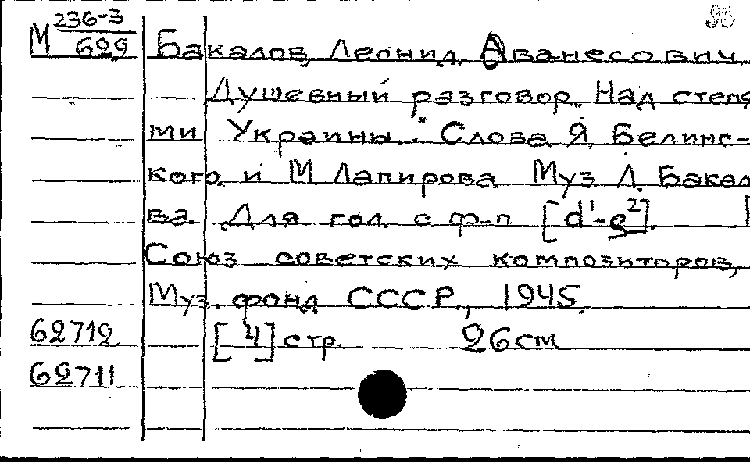 М 236-3
629
Бакалов, Леонид Аванесович
Душевный разговор. Над степя
ми Украины. Слова Я. Белинс-
кого и М Лапирова Муз Л. Бакал
ва. Для гол. с ф-п [d¹-g²]. [
Союз советских композиторов,
Муз. фонд СССР, 1945.
62712 [4] стр. 26 см
62711